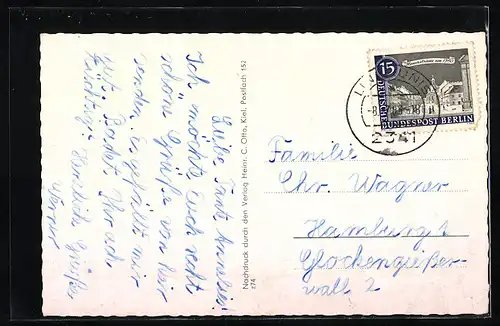 Liebe Tante Annelise!
Ich möchte Euch recht
schöne Grüße von hier
senden. Es gefällt mir
gut. Badet Ihr auch
tüchtig? Herzliche Grüße
Werner
Nachdruck durch den Verlag Heinr. C. Otto, Kiel, Postfach 152
15
DEUTSCHE
BUNDESPOST BERLIN
2341
Familie
Chr. Wagner
Hamburg 1
Glockengießer-
wall 2